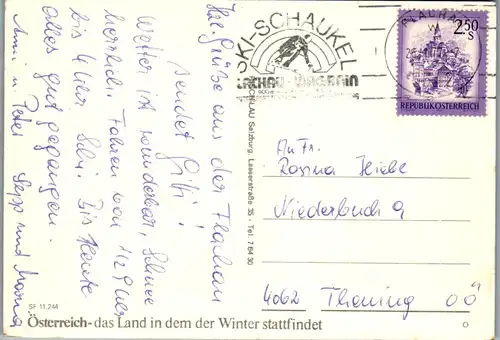 Hzl. Grüße aus der Flachau
sendet Gitti!
Wetter ist wunderbar, Schnee
herrlich. Fahren von 1/2 9 Uhr
bis 4 Uhr Schi. Bis Heute
alles gut gegangen.
Anni u. Peter Sepp und
SKI-SCHAUKEL
FLACHAU-WAGRAIN
FLACHAU
2.50 S
REPUBLIK ÖSTERREICH
Salzburg, Lasserstraße 35 - Tel. 7 64 30
An Fr.
Rosina
Niederbuch 9
4062 Thening OÖ
SF 11.244
Österreich - das Land in dem der Winter stattfindet